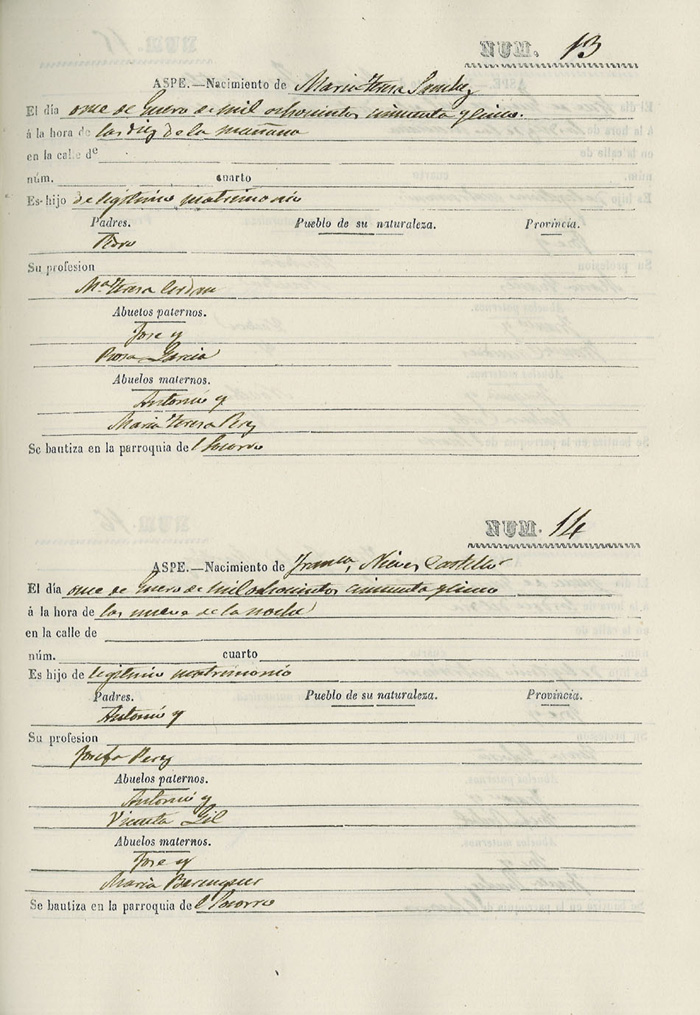 NUM. 13
ASPE.—Nacimiento de Maria Teresa Sanchez
El día once de Enero de mil ochocientos cincuenta y cinco.
á la hora de las diez de la mañana
en la calle de
núm. cuarto
Es hijo de legitimo matrimonio
Padres. Pueblo de su naturaleza. Provincia.
Pedro
Su profesion
Mª Teresa Cerdan
Abuelos paternos.
Jose y
Rosa Garcia
Abuelos maternos.
Antonio y
Maria Teresa Perez
Se bautiza en la parroquia del Socorro
NUM. 14
ASPE.—Nacimiento de Franca, Nieves Castello
El día once de Enero de mil ochocientos cincuenta y cinco
á la hora de las nueve de la noche
en la calle de
núm. cuarto
Es hijo de legitimo matrimonio
Padres. Pueblo de su naturaleza. Provincia.
Antonio y
Su profesion
Josefa Perez
Abuelos paternos.
Antonio y
Vicenta Gil
Abuelos maternos.
Jose y
Maria Berenguer
Se bautiza en la parroquia del Socorro